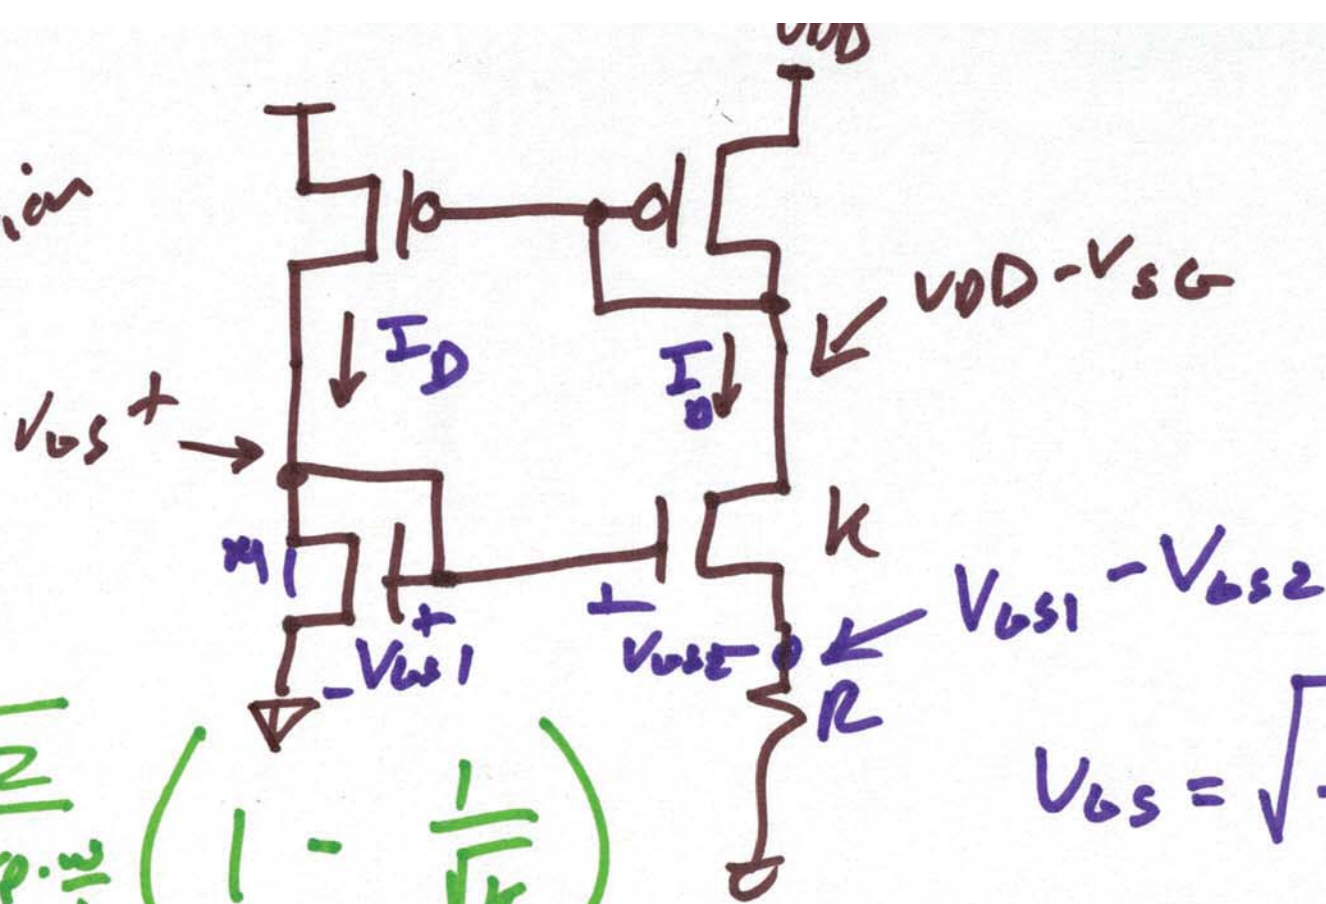 VDD
VDD-VSG
ID
ID
VGS+
K
M1
+
-VGS1
+
VGS2-
VGS1-VGS2
R
VGS = √
2
p.w
(1 - 1/√K)